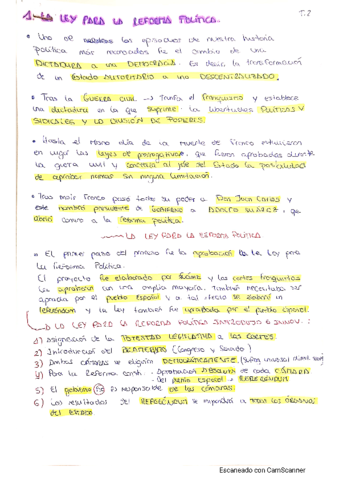 T.2
1.- LA LEY PARA LA REFORMA POLÍTICA.
• Uno de los episodios de nuestra historia
política más marcados fue el cambio de una
DICTADURA a una DEMOCRACIA. Es decir, la transformación
de un Estado AUTORITARIO a uno DESCENTRALIZADO.
• Tras la GUERRA CIVIL → Triunfa el Franquismo y establece
una dictadura en la que suprime las libertades POLÍTICAS Y
SINDICALES y LA DIVISIÓN DE PODERES.
• Hasta el mismo día de la muerte de Franco estuvieron
en vigor las leyes de prerrogativas, que fueron aprobadas durante
la guerra civil y concedía al jefe del Estado la posibilidad
de aprobar normas sin ninguna limitación.
• Tras morir Franco pasó todo su poder a Don Juan Carlos y
este nombró presidente de GOBIERNO a ADOLFO SUÁREZ, que
abrió camino a la reforma política.
→ LA LEY PARA LA REFORMA POLÍTICA
• El primer paso del proceso fue la aprobación de la Ley para
la Reforma Política.
El proyecto fue elaborado por Suárez y las cortes franquistas
la aprobaron con una amplia mayoría. También necesitaba ser
apoyada por el pueblo español y a tal efecto se elaboró un
referéndum y la ley también fue aprobada por el pueblo español.
→ LA LEY PARA LA REFORMA POLÍTICA INTRODUJO 6 INNOV.:
1) Asignación de la POTESTAD LEGISLATIVA a las CORTES.
2) Introducción del BICAMERALISMO (Congreso y Senado)
3) Ambas cámaras se eligirán DEMOCRÁTICAMENTE
4) Para la Reforma const. → Aprobación ABSOLUTA de cada CÁMARA
del pueblo español → REFERÉNDUM
5) El gobierno NO es responsable de las cámaras.
6) Los resultados del REFERÉNDUM se imponían a TODOS LOS ÓRGANOS
del Estado
Escaneado con CamScanner